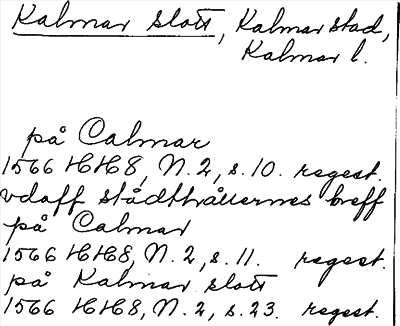 Kalmar slott, Kalmar stad,
Kalmar l.
på Calmar
1566 HH8, N. 2, s. 10. regest.
vdaff stådthållernes breff
på Calmar
1566 HH8, N. 2, s. 11. regest.
på Kalmar slott
1566 HH8, N. 2, s. 23. regest.